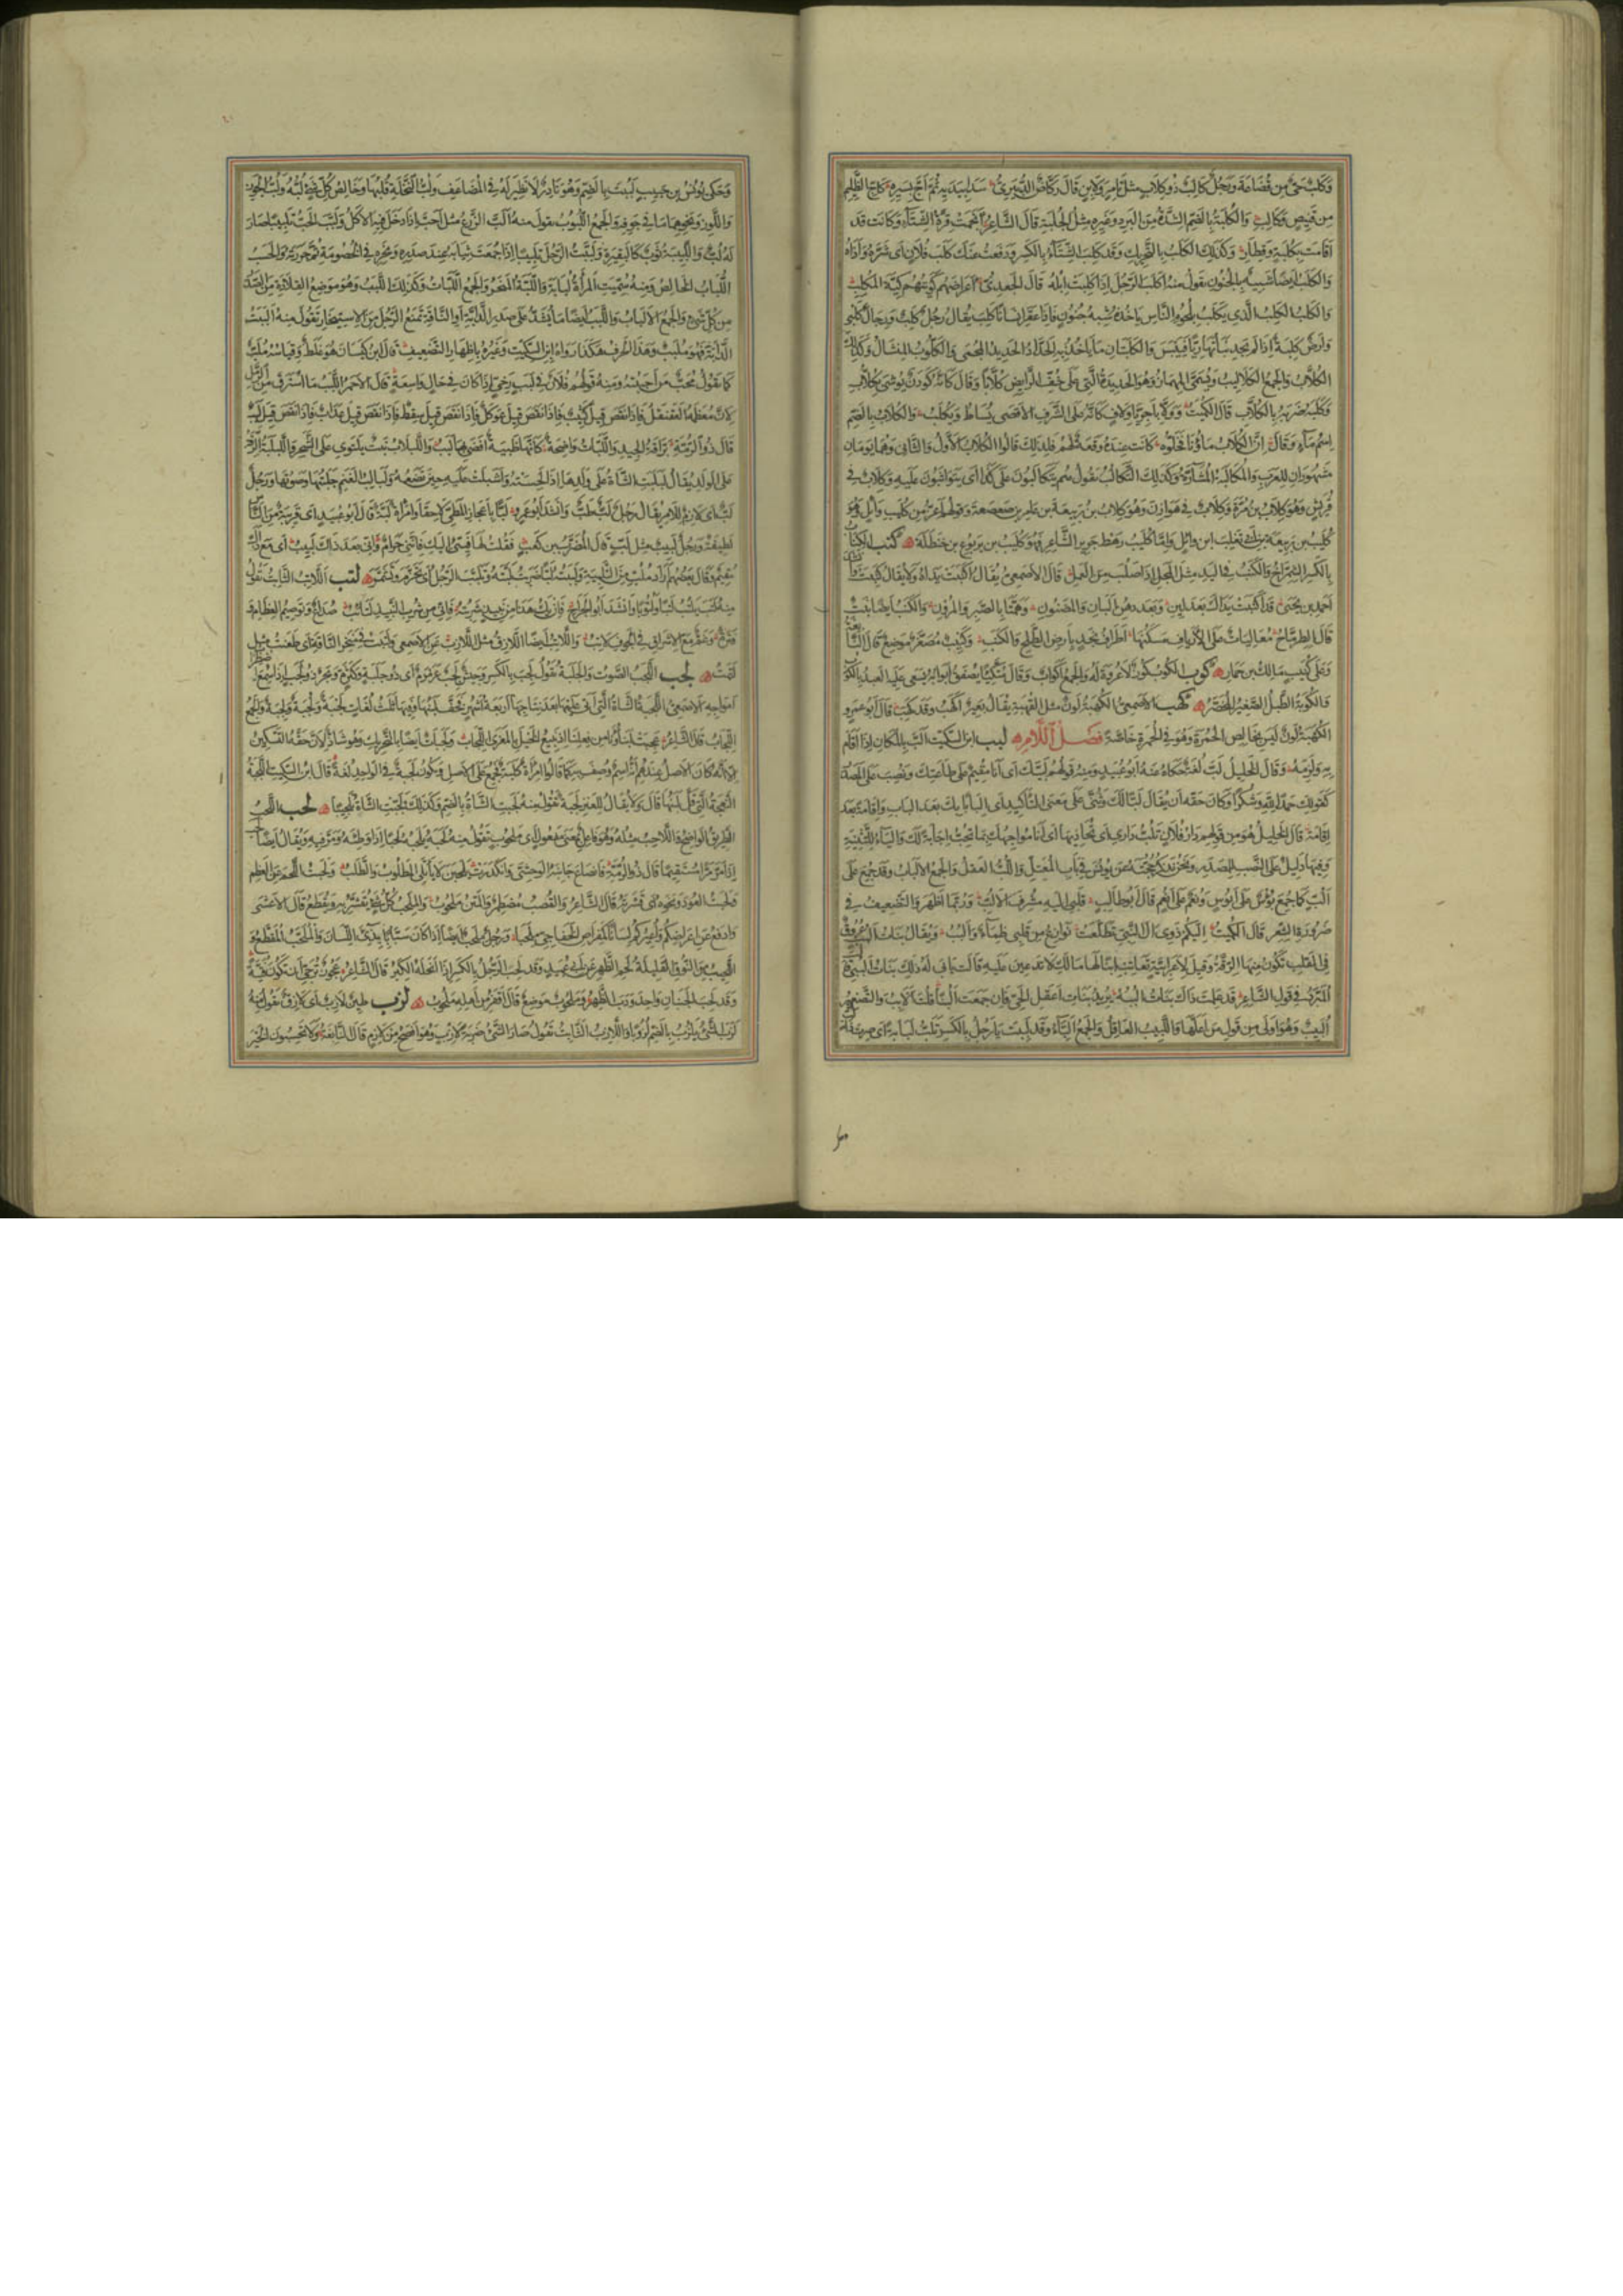 وَكَلْبٌ حَىٌّ مِن قُضَاعَةَ وَرَجُلٌ كَالِبٌ ذُو كِلَابٍ مثل تَامِرٍ وَلَابِنٍ قَالَ رَكَّاضٌ الدُّبَيْرِىُّ سَدَا بِيَدَيْهِ ثُمَّ اَجَّ بِسَيْرِهِ كَاَجِّ الظَّلِيمِ
مِن قَنِيصٍ وَكَالِبِ وَالْكُلْبَةُ بِالضَم الشِّدَّةُ مِنَ البَرْدِ وَغَيرِهِ مِثْلُ الجُلْبَةِ قَالَ الشَّاعِرُ اَنْجَمَتْ قِرَّةُ الشِّتَآءِ وَكَانَت قَد
اَقَامَت بِكُلْبَةٍ وَقِطَارِ وَكَذَلِكَ الكَلَبُ بِالتَّحْرِيكِ وَقَد كَلِبَ الشِّتَآءُ بِالكَسرِ وَدَفَعتُ عَنكَ كَلَبَ فُلَانٍ اَى شَرَّهُ وَاَذَاهُ
وَالكَلَبُ اَيضًا شَبِيهٌ بِالْجُنُونِ تَقُولُ مِنهُ اَكْلَبَ الرَّجُلُ اِذَا كَلِبَتْ اِبِلُهُ قَالَ الجَعْدِىُّ
وَالكَلْبُ الكَلِبُ الَّذِى يَكْلَبُ بِلُحُومِ النَّاسِ يَاخُذُهُ شِبْهُ جُنُونٍ فَاِذَا عَقَرَ اِنسَانًا كَلِبَ يُقَالُ رَجُلٌ كَلِبٌ وَرِجَالٌ كَلْبَى
وَاَرضٌ كَلِبَةٌ اِذَا لَم يَجِد نَبَاتُهَا رِيًّا فَيَبِسَ وَالكَلْبَتَانِ مَا يَاخُذُ بِهِ الحَدَّادُ الحَدِيدَ المُحْمَى وَالكَلُّوبُ المِنْشَالُ وَكَذَلِكَ
الكُلَّابُ وَالجَمْعُ الكَلَالِيبُ وَيُسَمَّى المِهْمَازُ وَهُوَ الحَدِيدَةُ الَّتِى عَلَى خُفِّ الرَّائِضِ كُلَّابًا وَقَالَ كَاَنَّهُ كَوْدَنٌ يُوشَى بِكُلَّابِ
وَكَلَبَهُ ضَرَبَهُ بِالكُلَّابِ قَالَ الكُمَيْتُ وَالكُلَابُ بِالضَم
اِسْمُ مَآءٍ وَقَالَ اِنَّ الكُلَابَ مَاؤُنَا فَخَلُّوهْ كَانَت عِندَهُ وَقْعَةٌ لَهُمْ فَلِذَلِكَ قَالُوا الكُلَابُ الاَوَّلُ وَالثَّانِى وَهُمَا يَومَانِ
مَشهُورَانِ لِلعَرَبِ وَالمُكَالَبَةُ المُشَارَّةُ وَكَذَلِكَ التَّكَالُبُ تَقُولُ هُمْ يَتَكَالَبُونَ عَلَى كَذَا اَى يَتَوَاثَبُونَ عَلَيهِ وَكِلَابٌ فِى
قُرَيشٍ وَهُوَ كِلَابُ بْنُ مُرَّةَ وَكِلَابٌ فِى هَوَازِنَ وَهُوَ كِلَابُ بْنُ رَبِيعَةَ بن عَامِرِ بن صَعْصَعَةَ وَقَولُهُم اَعَزُّ مِن كُلَيبِ وَائِلٍ هُوَ
كُلَيْبُ بن رَبِيعَةَ مِن بَنِى تَغْلِبَ ابن وَائِلٍ وَاَمَّا كُلَيبٌ رَهْطُ جَرِيرٍ الشَّاعِرِ فَهُوَ كُلَيبُ بن يَربُوعِ بن حَنْظَلَةَ كنب الكِنَابُ
بِالكَسرِ الشِّمْرَاخُ وَالكَنَبُ فِى اليَدِ مِثلُ المَجَلِ اِذَا صَلُبَتْ مِنَ العَمَلِ قَالَ الاَصمَعِىُّ يُقَالُ اَكْنَبَتْ يَدَاهُ وَلَا يُقَالُ كَنِبَتْ
اَحْمَدُ بن يَحيَى قَد اَكْنَبَتْ يَدَاكَ بَعْدَ لِينِ وَبَعدَ دُهْنِ البَانِ وَالمَضْنُونِ وَهَمَّتَا بِالصَّبْرِ وَالمُرُونِ وَالكَنِبُ اَيضًا نَبتٌ
قَالَ الطِّرِمَّاحُ مُعَالِيَاتٌ عَلَى الاَرْيَافِ مَسْكَنُهَا اَطْرَافُ نَجدٍ بِاَرضِ الطَّلحِ وَالكَنِبِ وَكُنَيبٌ مُصَغَّرٌ مَوضِعٌ قَالَ النَّابِغَةُ
وَعَلَى كُنَيبٍ مَالِكُ بن حِمَارِ كوب الكُوبُ كُوزٌ لَا عُرْوَةَ لَهُ وَالجَمْعُ اَكْوَابٌ وَقَالَ مُتَّكِئًا تُصْفَقُ اَبْوَابُهُ يَسْعَى عَلَيهِ العَبدُ بِالكُوبِ
وَالكُوبَةُ الطَّبلُ الصَّغِيرُ المُخَصَّرُ كهب الاَصمَعِىُّ الكُهْبَةُ لَونٌ مثل القُهْبَةِ يُقَالُ بَعِيرٌ اَكْهَبُ وَقَد كَهِبَ قَالَ اَبُو عَمرٍو
الكُهْبَةُ لَونٌ لَيسَ بِخَالِصِ الحُمْرَةِ وَهُوَ فِى الحُمْرَةِ خَاصَّةً فَصْلُ اَللَّامِ لبب ابنُ السِّكِّيتِ اَلَبَّ بِالمَكَانِ اِذَا اَقَامَ
بِهِ وَلَزِمَهُ وَقَالَ الخَلِيلُ لَبَّ لُغَةٌ حَكَاهُ عَنهُ اَبُو عُبَيدٍ وَمِنهُ قَولُهُم لَبَّيكَ اَى اَنَا مُقِيمٌ عَلَى طَاعَتِكَ وَنُصِبَ عَلَى المَصدَرِ
كَقَولِكَ حَمْدًا لِلّٰهِ وَشُكْرًا وَكَانَ حَقَّهُ اَن يُقَالَ لَبًّا لَكَ وَثُنِّىَ عَلَى مَعنَى التَّاكِيدِ اَى اِلبَابًا بِكَ بَعدَ اِلبَابٍ وَاِقَامَةً بَعدَ
اِقَامَةٍ قَالَ الخَلِيلُ هُوَ مِن قَولِهِم دَارُ فُلَانٍ تَلُبُّ دَارِى اَى تُحَاذِيهَا اَى اَنَا مُوَاجِهُكَ بِمَا تُحِبُّ اِجَابَةً لَكَ وَاليَآءُ لِلتَّثْنِيَةِ
وَفِيهَا دَلِيلٌ عَلَى النَّصبِ لِلمَصدَرِ وَنَحنُ نَذكُرُ حُجَّتَهُ عَن يُونُسَ فِى بَابِ المُعتَلِّ وَاللُّبُّ العَقلُ وَالجَمْعُ الاَلبَابُ وَقَد جُمِعَ عَلَى
اَلُبٍّ كَمَا جُمِعَ بُؤْسٌ عَلَى اَبْؤُسٍ وَنُعْمٌ عَلَى اَنْعُمٍ قَالَ اَبُو طَالِبٍ قَلبِى اِلَيهِ مُشْرِفُ الاَلُبِّ وَرُبَّمَا اَظْهَرُوا التَّضعِيفَ فِى
ضَرُورَةِ الشِّعرِ قَالَ الكُمَيتُ اِلَيكُم ذَوِى اٰلِ النَّبِىِّ تَطَلَّعَتْ نَوَازِعُ مِن قَلبِى ظِمَآءٌ وَاَلْبُبُ وَيُقَالُ بَنَاتُ اَلْبُبٍ عُرُوقٌ
فِى القَلبِ تَكُونُ مِنهَا الرِّقَّةُ وَقِيلَ لِاَعرَابِيَّةٍ تُعَاتِبُ ابنًا لَهَا مَا لَكِ لَا تَدعِينَ عَلَيهِ قَالَت تَابَى لَهُ ذَلِكَ بَنَاتُ اَلْبُبِى
المُبَرِّدُ فِى قَولِ الشَّاعِرِ قَد عَلِمَت ذَاكَ بَنَاتُ اَلْبَبِهْ يُرِيدُ بَنَاتِ اَعقَلِ الحَىِّ فَاِن جَمَعتَ اَلْبُبًا قُلتَ اَلَابِبُ وَالتَّصغِيرُ
اُلَيْبِبٌ وَهُوَ اَولَى مِن قَولِ مَن اَعَلَّهَا وَاللَّبِيبُ العَاقِلُ وَالجَمْعُ اَلِبَّآءُ وَقَد لَبِبْتَ يَا رَجُلُ بِالكَسرِ تَلَبُّ لَبَابَةً اَى صِرتَ ذَا لُبٍّ
وَحَكَى يُونُسُ بن حَبِيبٍ لَبُبْتَ بِالضَم وَهُوَ نَادِرٌ لَا نَظِيرَ لَهُ فِى المُضَاعَفِ وَلُبُّ النَّخْلَةِ قَلْبُهَا وَخَالِصُ كُلِّ شَىءٍ لُبُّهُ وَلُبُّ الجَوزِ
وَاللَّوزِ وَنَحوِهِمَا مَا فِى جَوفِهِ وَالجَمْعُ اللُّبُوبُ تَقُولُ مِنهُ اَلَبَّ الزَّرعُ مثل اَحَبَّ اِذَا دَخَلَ فِيهِ الاُكْلُ وَلَبَّبَ الحَبُّ تَلْبِيبًا صَارَ
لَهُ لُبٌّ وَاللَّبِيبَةُ ثَوبٌ كَالبَقِيرَةِ وَلَبَّبْتُ الرَّجُلَ تَلْبِيبًا اِذَا جَمَعتَ ثِيَابَهُ عِندَ صَدرِهِ وَنَحرِهِ فِى الخُصُومَةِ ثُمَّ جَرَرتَهُ وَالحَسَبُ
اللُّبَابُ الخَالِصُ وَمِنهُ سُمِّيَتِ المَرْاَةُ لُبَابَةَ وَاللَّبَّةُ المَنحَرُ وَالجَمْعُ اللَّبَّاتُ وَكَذَلِكَ اللَّبَبُ وَهُوَ مَوضِعُ القِلَادَةِ مِنَ الصَّدرِ
مِن كُلِّ شَىءٍ وَالجَمْعُ الاَلبَابُ وَاللَّبَبُ اَيضًا مَا يُشَدُّ عَلَى صَدرِ الدَّابَّةِ اَوِ النَّاقَةِ يَمنَعُ الرَّحلَ مِنَ الاِستِيخَارِ تَقُولُ مِنهُ اَلْبَبتُ
الدَّابَّةَ فَهُوَ مُلْبَبٌ وَهَذَا الحَرفُ هَكَذَا رَوَاهُ ابنُ السِّكِّيتِ وَغَيرُهُ بِاِظهَارِ التَّضعِيفِ قَالَ ابنُ كَيسَانَ هُوَ غَلَطٌ وَقِيَاسُهُ مُلَبٌّ
كَمَا تَقُولُ مُحَبٌّ مِن اَحبَبتُهُ وَمِنهُ قَولُهُم فُلَانٌ فِى لَبَبٍ رَخِىٍّ اِذَا كَانَ فِى حَالٍ وَاسِعَةٍ قَالَ الاَحمَرُ اللَّبَبُ مَا استَرَقَّ مِنَ الرَّملِ
لِاَنَّ مُعظَمَهُ العَقَنْقَلُ فَاِذَا نَقَصَ قِيلَ كَثِيبٌ فَاِذَا نَقَصَ قِيلَ عَوكَلٌ فَاِذَا نَقَصَ قِيلَ سِقْطٌ فَاِذَا نَقَصَ قِيلَ عَدَابٌ فَاِذَا نَقَصَ قِيلَ لَبَبٌ
قَالَ ذُو الرُّمَّةِ بَرَّاقَةُ الجِيدِ وَاللَّبَّاتِ وَاضِحَةٌ كَاَنَّهَا ظَبْيَةٌ اَفْضَى بِهَا لَبَبُ وَاللَّبْلَابُ نَبتٌ يَلتَوِى عَلَى الشَّجَرِ وَاللَّبْلَبَةُ الرِّقَّةُ
عَلَى الوَلَدِ يُقَالُ لَبْلَبَتِ الشَّاةُ عَلَى وَلَدِهَا اِذَا لَحِسَتْهُ وَاَشبَلَتْ عَلَيهِ حِينَ تَضَعُهُ وَلَبَالِبُ الغَنَمِ جَلَبَتُهَا وَصَوتُهَا وَرَجُلٌ
لَبٌّ اَى لَازِمٌ لِلاَمرِ يُقَالُ رَجُلٌ لَبٌّ طَبٌّ وَاَنشَدَ اَبُو عَمرٍو لَبًّا بِاَعجَازِ المَطِىِّ لَاحِقَا وَامرَاَةٌ لَبَّةٌ قَالَ اَبُو عُبَيدٍ اَى قَرِيبَةٌ مِنَ النَّاسِ
لَطِيفَةٌ وَرَجُلٌ لَبِيبٌ مثل لَبٍّ قَالَ المُضَرِّبُ بن كَعبٍ فَقُلتُ لَهَا فِيئِى اِلَيكِ فَاِنَّنِى حَرَامٌ وَاِنِّى بَعدَ ذَاكَ لَبِيبُ اَى مَع ذَلِكَ
مُقِيمٌ وَقَالَ بَعضُهُم اَرَادَ مُلَبٍّ مِنَ التَّلبِيَةِ وَلَبَبْتُهُ ضَرَبتُ لَبَّتَهُ وَتَلَبَّبَ الرَّجُلُ اَى تَحَزَّمَ وَتَشَمَّرَ لتب اَللَّاتِبُ الثَّابِتُ تَقُولُ
مِنهُ لَتَبَ يَلْتُبُ لَتْبًا وَلُتُوبًا وَاَنشَدَ اَبُو الجَرَّاحِ فَاِن يَكُ هَذَا مِن نَبِيذٍ شَرِبتُهُ فَاِنِّى مِن شُربِ النَّبِيذِ لَتَائِبُ صُدَاعٌ وَتَوصِيمُ العِظَامِ وَ
فَترَةٌ وَغَمٌّ مَعَ الاِشرَاقِ فِى الجَوفِ لَاتِبُ وَاللَّاتِبُ اَيضًا اللَّازِقُ مثل اللَّازِبِ عَنِ الاَصمَعِى وَلَتَبَ فِى مَنحَرِ النَّاقَةِ اَى طَعَنَ مِثلُ
لَتَمَتْ لجب اللَّجَبُ الصَّوتُ وَالجَلَبَةُ تَقُولُ لَجِبَ بِالكَسرِ وَجَيشٌ لَجِبٌ عَرَمْرَمٌ اَى ذُو جَلَبَةٍ وَكَثْرَةٍ وَبَحرٌ ذُو لَجَبٍ اِذَا سُمِعَ اضْطِرَابُ
اَموَاجِهِ الاَصمَعِىُّ اللَّجْبَةُ الشَّاةُ الَّتِى اَتَى عَلَيهَا بَعدَ نَتَاجِهَا اَربَعَةُ اَشهُرٍ فَخَفَّ لَبَنُهَا وَفِيهَا ثَلَثُ لُغَاتٍ لَجْبَةٌ وَلُجْبَةٌ وَلِجْبَةٌ وَالجَمْعُ
اللِّجَابُ قَالَ الشَّاعِرُ عَجِبَت اَبنَاؤُنَا مِن فِعلِنَا اِذ نَبِيعُ الخَيلَ بِالمِعزَى اللِّجَابِ وَلَجَبَاتٌ اَيضًا بِالتَّحرِيكِ وَهُوَ شَاذٌّ لِاَنَّ حَقَّهُ التَّسكِينُ
اِلَّا اَنَّهُ كَانَ الاَصلُ عِندَهُم اَنَّهُ اِسمٌ وُصِفَ بِهِ كَمَا قَالُوا امرَاَةٌ كَلبَةٌ فَجُمِعَ عَلَى الاَصلِ وَتَكُونُ لَجَبَةٌ فِى الوَاحِدِ لُغَةً قَالَ ابنُ السِّكِّيتِ اللَّجبَةُ
النَّعجَةُ الَّتِى قَلَّ لَبَنُهَا قَالَ وَلَا يُقَالُ لِلعَنزِ لَجْبَةٌ تَقُولُ مِنهُ لَجُبَتِ الشَّاةُ بِالضَم وَكَذَلِكَ لَجَّبَتِ الشَّاةُ تَلجِيبًا لحب اللَّحْبُ
الطَّرِيقُ الوَاضِحُ وَاللَّاحِبُ مِثلُهُ وَهُوَ فَاعِلٌ بِمَعنَى مَفعُولٍ اَى مَلحُوبٌ تَقُولُ مِنهُ لَحَبَهُ يَلحَبُهُ لَحْبًا اِذَا وَطِئَهُ وَمَرَّ فِيهِ وَيُقَالُ اَيضًا لَحَبَ
اِذَا مَرَّ مَرًّا مُستَقِيمًا قَالَ ذُو الرُّمَّةِ فَانصَاعَ جَانِبُهُ الوَحشِىُّ وَانكَدَرَت يَلْحَبْنَ لَا يَاتَلِى المَطلُوبُ وَالطَّلَبُ وَلَحَبتُ اللَّحمَ عَنِ العَظمِ
وَلَحَبتُ العُودَ وَنَحوَهُ اَى قَشَرتُهُ قَالَ الشَّاعِرُ وَالقُصبُ مُضطَمِرٌ وَالمَتنُ مَلحُوبُ وَالمِلحَبُ كُلُّ شَىءٍ يُقشَرُ بِهِ وَيُقطَعُ قَالَ الاَعشَى
وَاَدفَعُ عَن اَعرَاضِكُم وَاُعِيرُكُم لِسَانًا كَمِقرَاضِ الخَفَاجِىِّ مِلحَبَا وَرَجُلٌ مِلحَبٌ اَيضًا اِذَا كَانَ سَبَّابًا بَذِىَّ اللِّسَانِ وَالمُلَحَّبُ المُقَطَّعُ وَ
اللَّحِيبُ مِنَ النُّوقِ القَلِيلَةُ لَحمِ الظَّهرِ عَن اَبِى عُبَيدٍ وَقَد لَحِبَ الرَّجُلُ بِالكَسرِ اِذَا اَنحَلَهُ الكِبَرُ قَالَ الشَّاعِرُ عَجُوزٌ تُرَجِّى اَن تَكُونَ فَتِيَّةً
وَقَد لَحِبَ الجَنبَانِ وَاحدَودَبَ الظَّهرُ وَمَلحُوبٌ مَوضِعٌ قَالَ اَقفَرَ مِن اَهلِهِ مَلحُوبُ لزب طِينٌ لَازِبٌ اَى لَازِقٌ تَقُولُ مِنهُ
لَزَبَ الشَّىءُ يَلزُبُ بِالضَم لُزُوبًا وَاللَّازِبُ الثَّابِتُ تَقُولُ صَارَ الشَّىءُ ضَربَةَ لَازِبٍ وَهُوَ اَفصَحُ مِن لَازِمٍ قَالَ النَّابِغَةُ وَلَا تَحسِبُونَ الخَيرَ